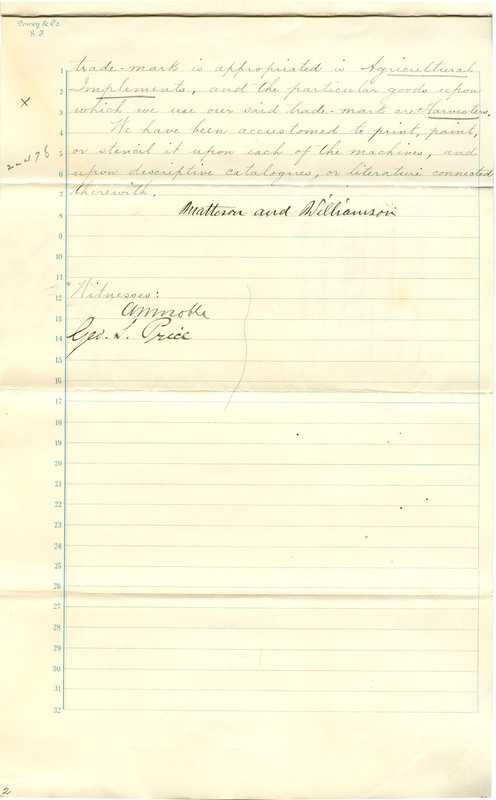 Dewey & Co.
S. F.
1 trade-mark is appropriated is Agricultural
2 Implements, and the particular goods upon
X
3 which we use our said trade-mark are Harvesters.
4 We have been accustomed to print, paint,
5 or stencil it upon each of the machines, and
6 upon descriptive catalogues, or literature connected
7 therewith.
8 Matteson and Williamson
9
10
11
12 Witnesses:
13
14 Geo. L. Price
15
16
17
18
19
20
21
22
23
24
25
26
27
28
29
30
31
32
2